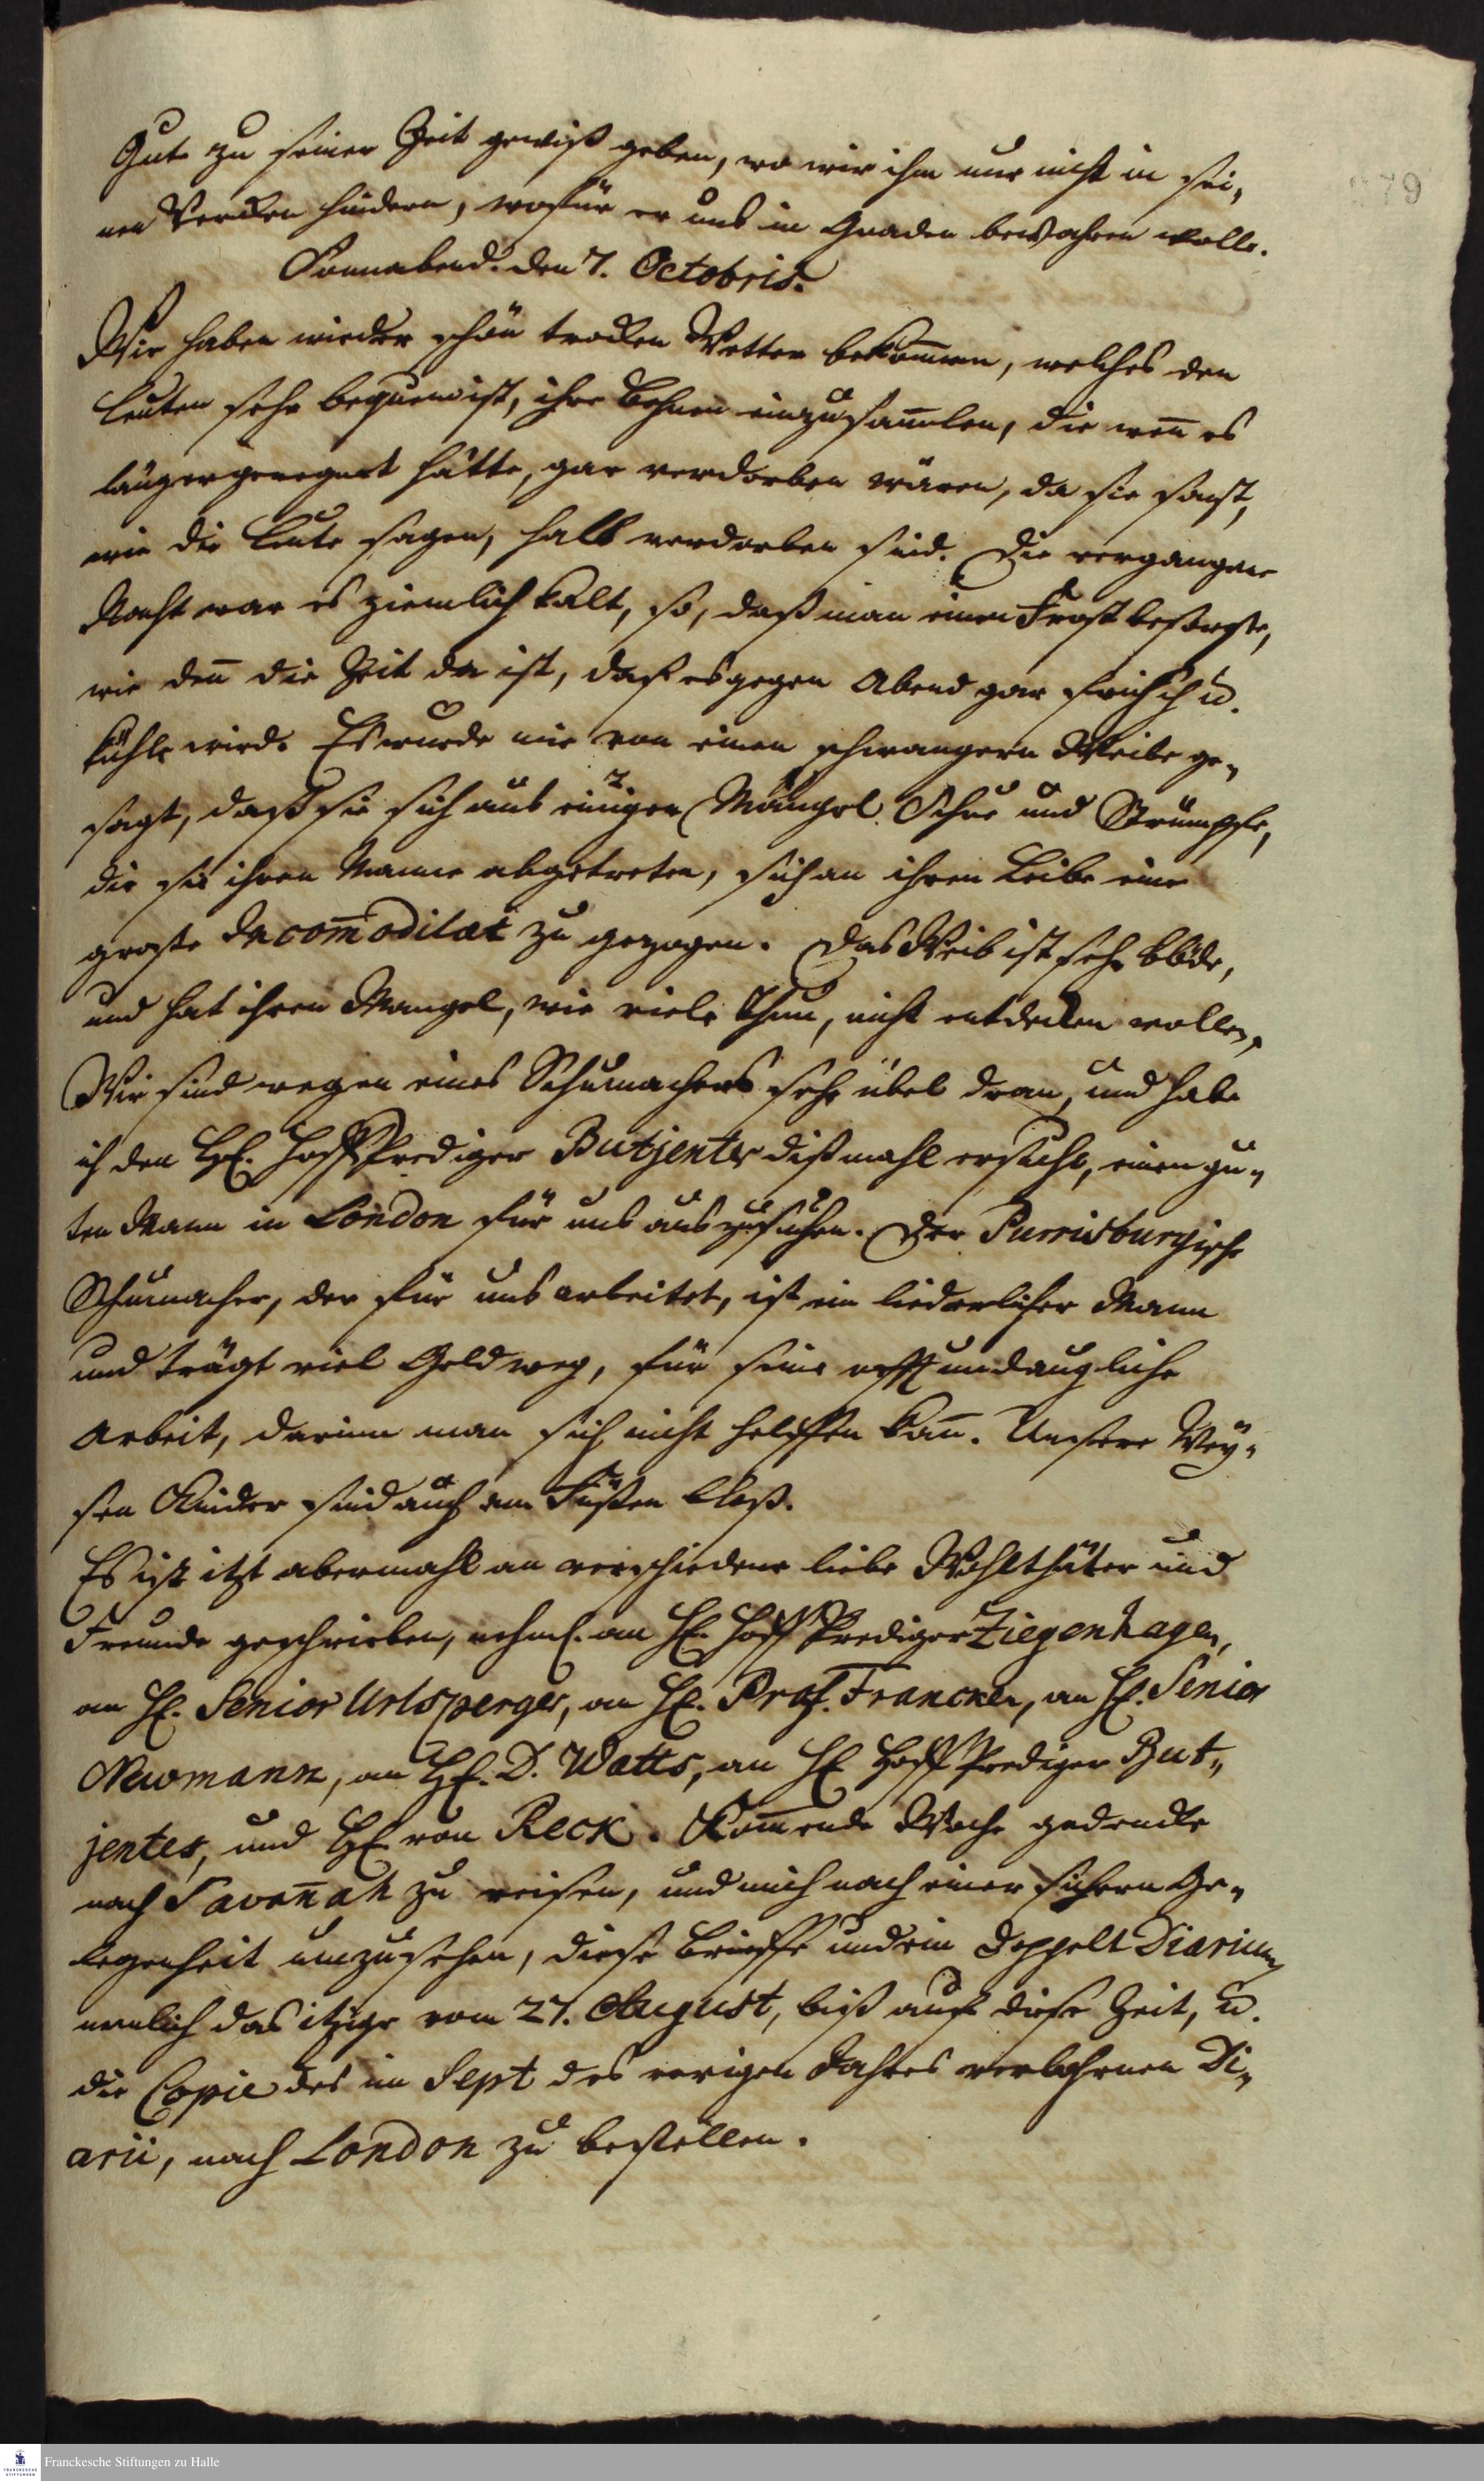 79
Gute zu seiner Zeit gewiß geben, wo wir ihm nur nicht in sei-
nen Wercken hindern, wofür er uns in Gnaden bewahren wolle.
Sonnabend. den 7. Octobris.
Wir haben wieder schön trocken Wetter bekom̅en, welches den
Leuten sehr bequem ist, ihre Bohnen einzusam̅len, die wen̅ es
länger geregnet hätte, gar verdorben wären, da sie sonst,
wie die Leute sagen, halb verdorben sind. Die vergangene
Nacht war es ziemlich kalt, so, daß man einen Frost besorgte,
wie den̅ die Zeit da ist, daß es gegen Abend gar frisch u.
kühle wird. Es wurde mir von einen schwangern Weibe ge-
sagt, daß sie sich aus einiger Mangel Schue und Strümpfe,
die sie ihren Manne abgetreten, sich an ihren Leibe eine
große Incom̅oditaet zu gezogen. Das Weib ist sehr blöde,
und hat ihren Mangel, wie viele thun, nicht entdecken wollen,
Wir sind wegen eines Schumachers sehr übel dran, und habe
ich den HE. Hoff Prediger Butjenter dißmahl ersucht, einen gu-
ten Mann in London für uns auszusuchen. Der Purrisburgische
Schumacher, der für uns arbeitet, ist ein liederlicher Mann
und trägt viel Geld weg, für seine undaugliche
Arbeit, darinn man sich nicht helffen kan̅. Unsere Wey-
sen Kinder sind auch am Füßen bloß.
Es ist itzt abermahl an verschiedene liebe Wohlthäter und
Freunde geschrieben, nehml. an HE. Hoff Prediger Ziegenhagen,
an HE. Senior Urlsperger, an HE. Prof. Francken, an HE. Senior
Newmann, an HE. D. Watts, an HE Hoff Prediger But-
jenter, und HE von Reck. Kom̅ende Woche gedencke
nach Savan̅ah zu reisen, und mich nach einer sichern Ge-
legenheit umzusehen, diese Brieffe und ein doppelt Diarium,
nemlich das itzige vom 27. August, biß auf diese Zeit, u.
die Copie des im Sept des vorigen Jahres verlohrnen Di-
arii, nach London zu bestellen.
Franckesche Stiftungen zu Halle